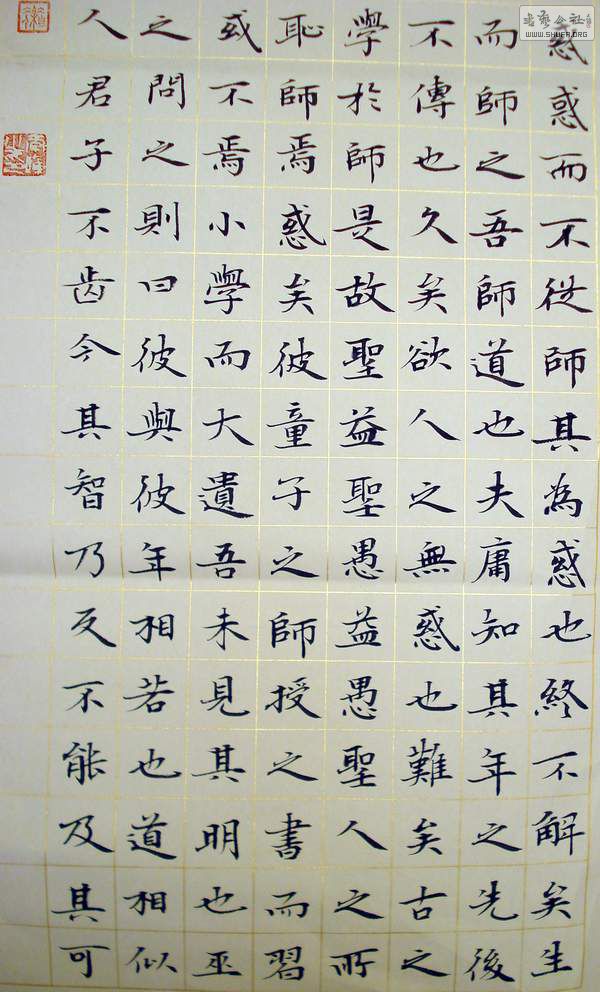 惑惑而不從師其為惑也終不解矣生
而師之吾師道也夫庸知其年之先後
不傳也久矣欲人之無惑也難矣古之
學於師是故聖益聖愚益愚聖人之所
恥師焉惑矣彼童子之師授之書而習
或不焉小學而大遺吾未見其明也巫
之問之則曰彼與彼年相若也道相似
人君子不齿今其智乃反不能及其可
WWW.SHUFA.ORG